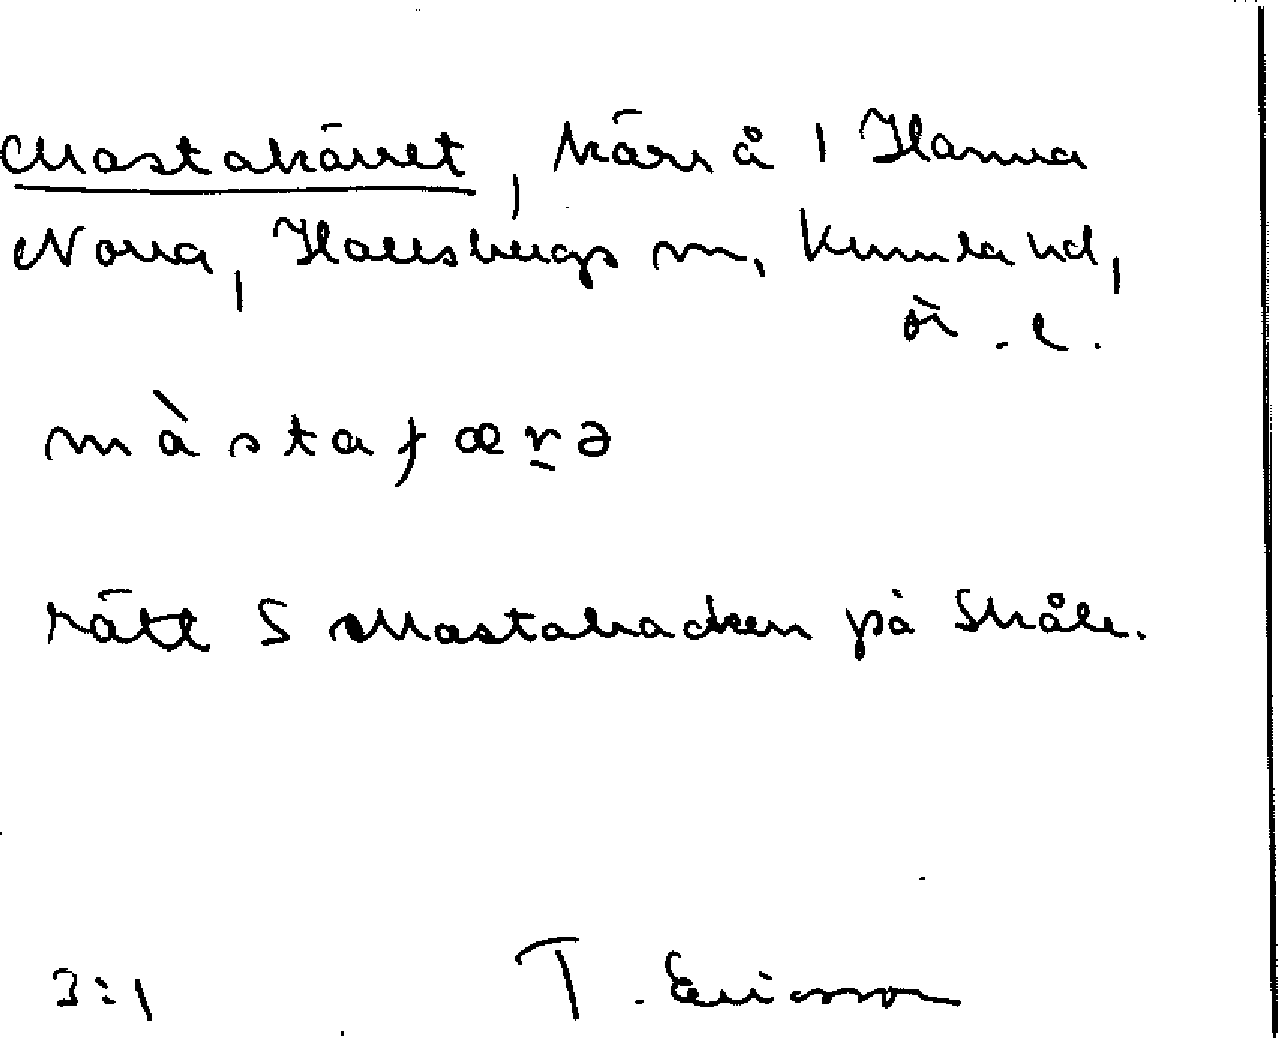 Mastakärret, kärr å 1 Hamra
Norra, Hallsbergs sn, Kumla hd,
Ör. l.
màstaꞔæṟə
rätt S Mastabacken på Skåle.
3:1 T. Ericsson